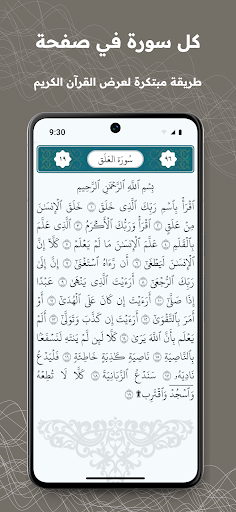 كل سورة في صفحة
طريقة مبتكرة لعرض القرآن الكريم
9:30
٩٦ سُورَةُ العَلَق ١٩
بِسْمِ ٱللَّهِ ٱلرَّحْمَٰنِ ٱلرَّحِيمِ
ٱقْرَأْ بِٱسْمِ رَبِّكَ ٱلَّذِى خَلَقَ ۝١ خَلَقَ ٱلْإِنسَٰنَ
مِنْ عَلَقٍ ۝٢ ٱقْرَأْ وَرَبُّكَ ٱلْأَكْرَمُ ۝٣ ٱلَّذِى عَلَّمَ
بِٱلْقَلَمِ ۝٤ عَلَّمَ ٱلْإِنسَٰنَ مَا لَمْ يَعْلَمْ ۝٥ كَلَّآ إِنَّ
ٱلْإِنسَٰنَ لَيَطْغَىٰٓ ۝٦ أَن رَّءَاهُ ٱسْتَغْنَىٰٓ ۝٧ إِنَّ إِلَىٰ
رَبِّكَ ٱلرُّجْعَىٰٓ ۝٨ أَرَءَيْتَ ٱلَّذِى يَنْهَىٰ ۝٩ عَبْدًا
إِذَا صَلَّىٰٓ ۝١٠ أَرَءَيْتَ إِن كَانَ عَلَى ٱلْهُدَىٰٓ ۝١١ أَوْ
أَمَرَ بِٱلتَّقْوَىٰٓ ۝١٢ أَرَءَيْتَ إِن كَذَّبَ وَتَوَلَّىٰٓ ۝١٣ أَلَمْ
يَعْلَم بِأَنَّ ٱللَّهَ يَرَىٰ ۝١٤ كَلَّا لَئِن لَّمْ يَنتَهِ لَنَسْفَعًۢا
بِٱلنَّاصِيَةِ ۝١٥ نَاصِيَةٍ كَٰذِبَةٍ خَاطِئَةٍ ۝١٦ فَلْيَدْعُ
نَادِيَهُۥ ۝١٧ سَنَدْعُ ٱلزَّبَانِيَةَ ۝١٨ كَلَّا لَا تُطِعْهُ
وَٱسْجُدْ وَٱقْتَرِب ۩ ۝١٩